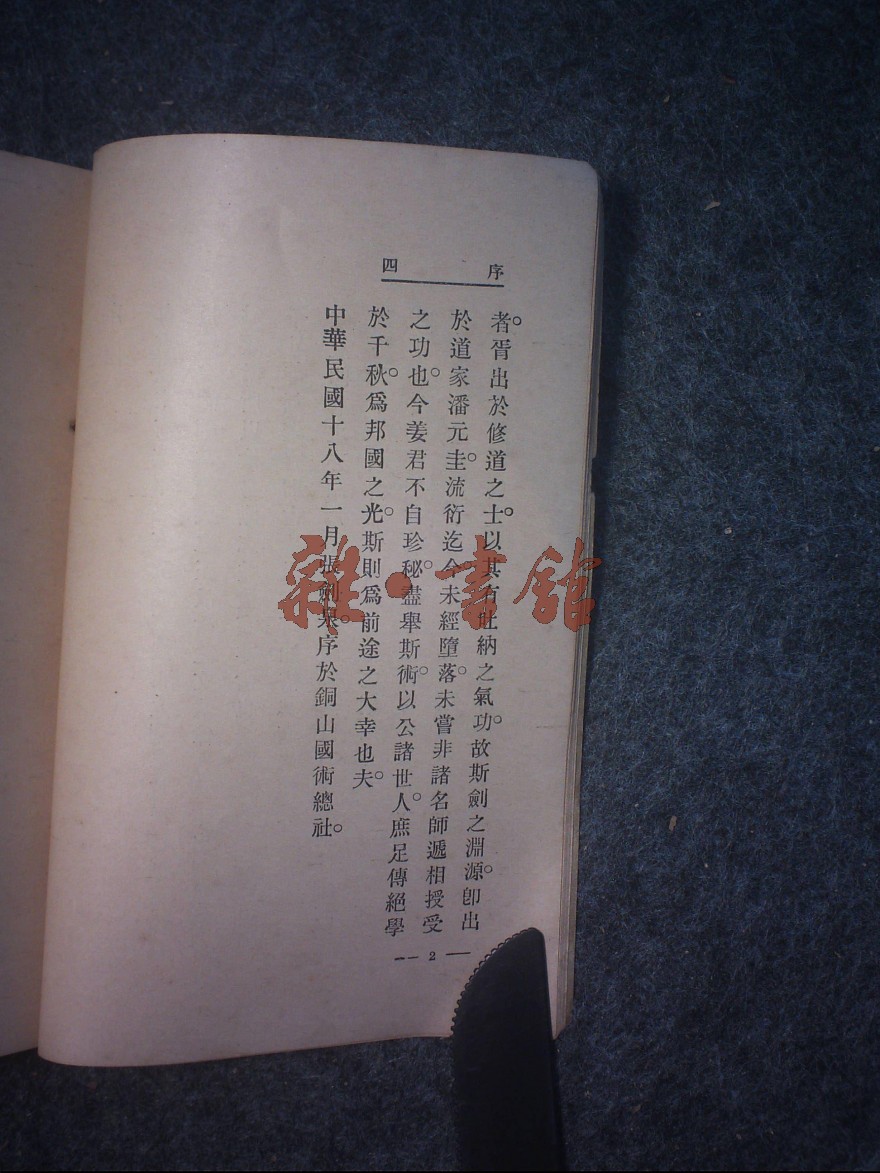 序 四
者。胥出於修道之士。以其有吐納之氣功。故斯劍之淵源。卽出
於道家潘元圭。流衍迄今。未經墮落。未嘗非諸名師遞相授受
之功。也今姜君不自珍秘。盡舉斯術。以公諸世人。庶足傳絕學
於千秋。爲邦國之光。斯則爲前途之大幸也夫。
中華民國十八年一月張劍泉。序於銅山國術總社。
— 2 —
雜·書館